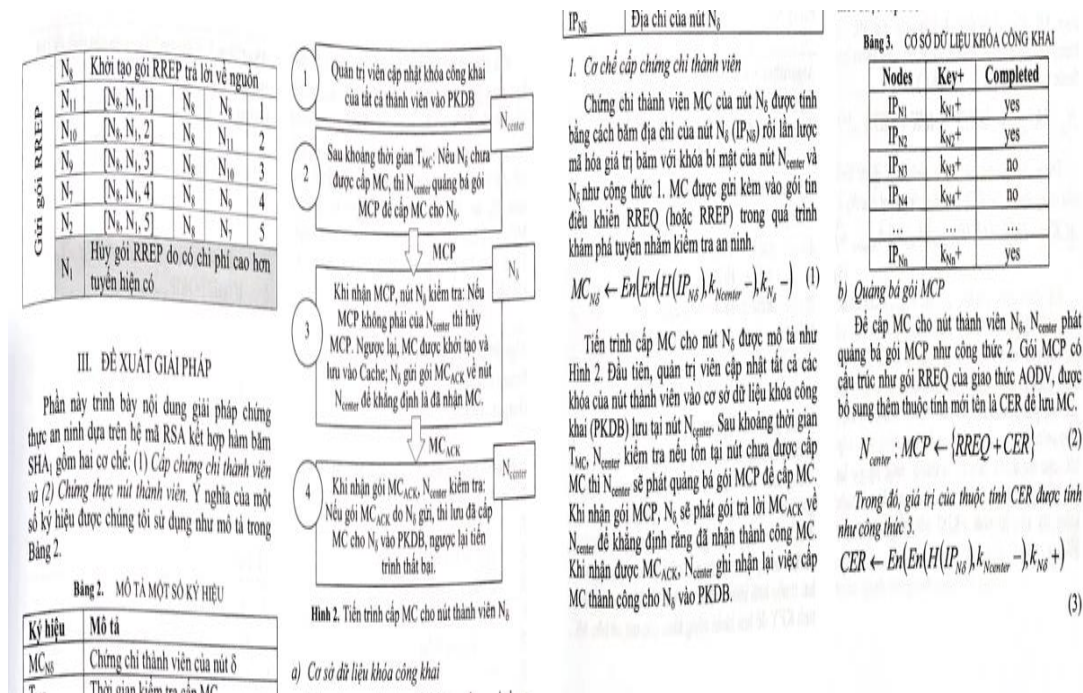 Gửi gói RREP
N₈ Khởi tạo gói RREP trả lời về nguồn
N₁₁ [N₈, N₁, 1] N₈ N₈ 1
N₁₀ [N₈, N₁, 2] N₈ N₁₁ 2
N₉ [N₈, N₁, 3] N₈ N₁₀ 3
N₇ [N₈, N₁, 4] N₈ N₉ 4
N₂ [N₈, N₁, 5] N₈ N₇ 5
N₁ Hủy gói RREP do có chi phí cao hơn
tuyến hiện có
III. ĐỀ XUẤT GIẢI PHÁP
Phần này trình bày nội dung giải pháp chứng
thực an ninh dựa trên hệ mã RSA kết hợp hàm băm
SHA; gồm hai cơ chế: (1) Cấp chứng chỉ thành viên
và (2) Chứng thực nút thành viên. Ý nghĩa của một
số ký hiệu được chúng tôi sử dụng như mô tả trong
Bảng 2.
Bảng 2. MÔ TẢ MỘT SỐ KÝ HIỆU
Ký hiệu Mô tả
MC_Nδ Chứng chỉ thành viên của nút δ
Thời gian kiểm tra cấp MC
1
Quản trị viên cập nhật khóa công khai
của tất cả thành viên vào PKDB
N_center
2
Sau khoảng thời gian T_MC: Nếu Nδ chưa
được cấp MC, thì N_center quảng bá gói
MCP để cấp MC cho Nδ.
MCP
Nδ
3
Khi nhận MCP, nút Nδ kiểm tra: Nếu
MCP không phải của N_center thì hủy
MCP. Ngược lại, MC được khởi tạo và
lưu vào Cache; Nδ gửi gói MC_ACK về nút
N_center để khẳng định là đã nhận MC.
MC_ACK
N_center
4
Khi nhận gói MC_ACK, N_center kiểm tra:
Nếu gói MC_ACK do Nδ gửi, thì lưu đã cấp
MC cho Nδ vào PKDB, ngược lại tiến
trình thất bại.
Hình 2. Tiến trình cấp MC cho nút thành viên Nδ
a) Cơ sở dữ liệu khóa công khai
IP_Nδ Địa chỉ của nút Nδ
1. Cơ chế cấp chứng chỉ thành viên
Chứng chỉ thành viên MC của nút Nδ được tính
bằng cách băm địa chỉ của nút Nδ (IP_Nδ) rồi lần lượt
mã hóa giá trị băm với khóa bí mật của nút N_center và
Nδ như công thức 1. MC được gửi kèm vào gói tin
điều khiển RREQ (hoặc RREP) trong quá trình
khám phá tuyến nhằm kiểm tra an ninh.
MC_Nδ ← En(En(H(IP_Nδ), k_Ncenter −), k_Nδ −) (1)
Tiến trình cấp MC cho nút Nδ được mô tả như
Hình 2. Đầu tiên, quản trị viên cập nhật tất cả các
khóa của nút thành viên vào cơ sở dữ liệu khóa công
khai (PKDB) lưu tại nút N_center. Sau khoảng thời gian
T_MC, N_center kiểm tra nếu tồn tại nút chưa được cấp
MC thì N_center sẽ phát quảng bá gói MCP để cấp MC.
Khi nhận gói MCP, Nδ sẽ phát gói trả lời MC_ACK về
N_center để khẳng định rằng đã nhận thành công MC.
Khi nhận được MC_ACK, N_center ghi nhận lại việc cấp
MC thành công cho Nδ vào PKDB.
Bảng 3. CƠ SỞ DỮ LIỆU KHÓA CÔNG KHAI
Nodes Key+ Completed
IP_N1 k_N1+ yes
IP_N2 k_N2+ yes
IP_N3 k_N3+ no
IP_N4 k_N4+ no
... ... ...
IP_Nn k_Nn+ yes
b) Quảng bá gói MCP
Để cấp MC cho nút thành viên Nδ, N_center phát
quảng bá gói MCP như công thức 2. Gói MCP có
cấu trúc như gói RREQ của giao thức AODV, được
bổ sung thêm thuộc tính mới tên là CER để lưu MC.
N_center : MCP ← {RREQ + CER} (2)
Trong đó, giá trị của thuộc tính CER được tính
như công thức 3.
CER ← En(En(H(IP_Nδ), k_Ncenter −), k_Nδ +)
(3)